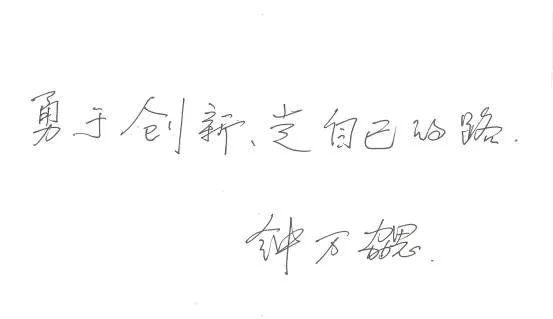 勇于创新、走自己的路.
钟万勰.